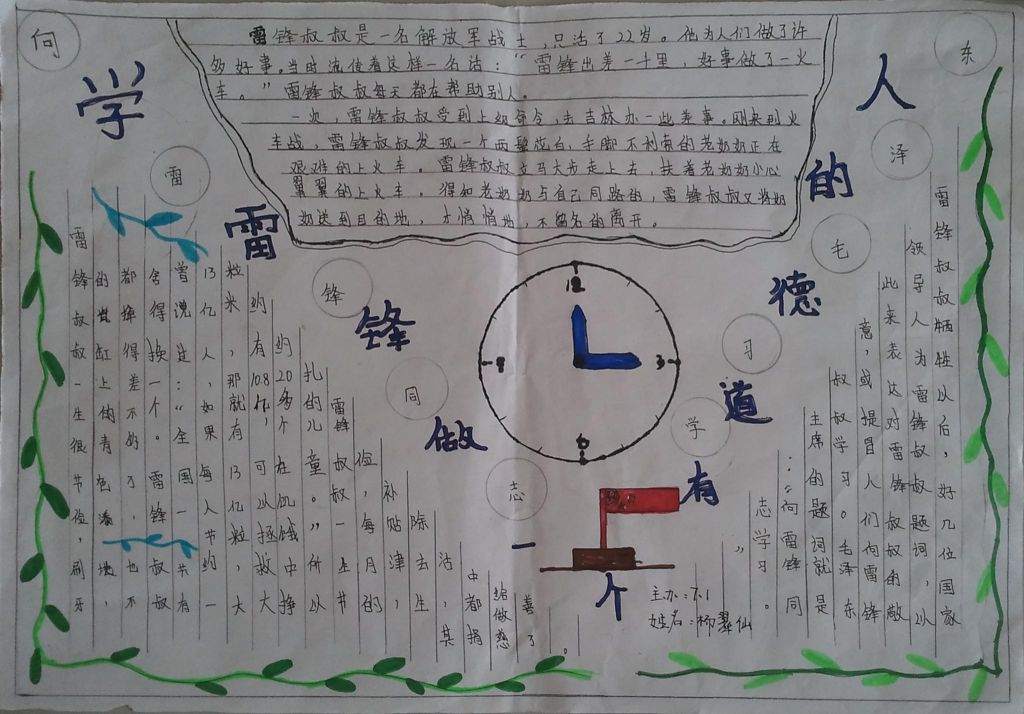 雷锋叔叔是一名解放军战士,只活了22岁。他为人们做了许
多好事。当时流传着这样一句话:“雷锋出差一千里,好事做了一火
车。”雷锋叔叔每天都在帮助别人。
一次,雷锋叔叔受到上级命令,去吉林办一些差事。刚来到火
车战,雷锋叔叔发现一个两鬓斑白,手脚不利索的老奶奶正在
艰难的上火车。雷锋叔叔立马大步走上去,扶着老奶奶小心
翼翼的上火车。得知老奶奶与自己同路的,雷锋叔叔又将奶
奶送到目的地,才悄悄地,不留名的离开。
学雷锋做一个有道德的人
向雷锋同志学习
毛泽东
雷锋叔叔一生很节俭,刷牙
的瓷缸上的青色
都掉得差不好了,也不
舍得换一个。雷锋叔叔
曾说过:“全国一节有
13亿人,如果每人节约一
粒米,那就有13亿粒,大
约有108吨,可以拯救大
约20多个在饥饿中挣
扎的儿童。”所以
雷锋叔叔一生节
俭,每月的
补贴津,
除去生
活,其
中都捐
给做慈
善了。
12
3
6
9
雷锋叔叔牺牲以后,好几位国家
领导人为雷锋叔叔题词,以
此来表达对雷锋叔叔的敬
意,或提冒人们向雷锋
叔叔学习。毛泽东
主席的题词就是
:“向雷锋同
志学习。
”
主办:7.1
姓名:柳翠仙